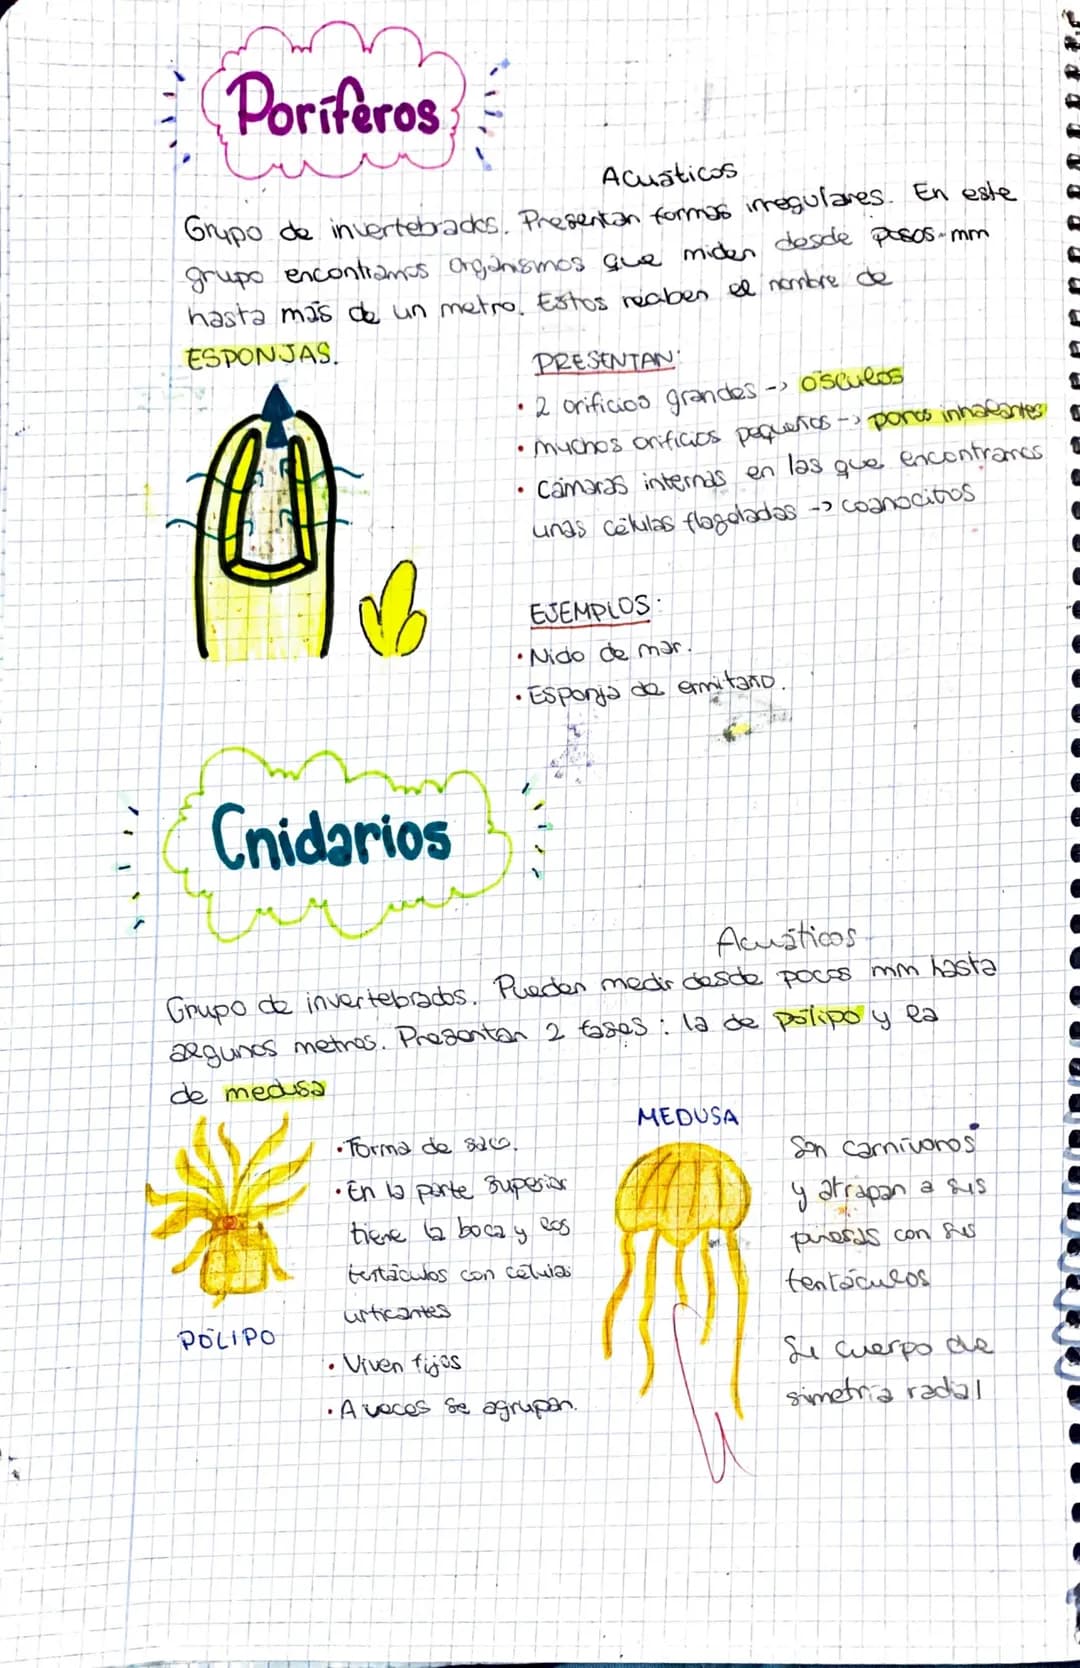 Poríferos
Acuáticos
Grupo de invertebrados. Presentan formas irregulares. En este
grupo encontramos organismos que miden desde pocos mm
hasta más de un metro. Estos reciben el nombre de
ESPONJAS.
PRESENTAN:
• 2 orificios grandes -> ósculos
• muchos orificios pequeños -> poros inhalantes
• cámaras internas en las que encontramos
unas células flageladas -> coanocitos
EJEMPLOS:
• Nido de mar.
• Esponja de ermitaño.
Cnidarios
Acuáticos
Grupo de invertebrados. Pueden medir desde pocos mm hasta
algunos metros. Presentan 2 fases: la de pólipo y la
de medusa
PÓLIPO
• Forma de saco.
• En la parte superior
tiene la boca y los
tentáculos con células
urticantes
• Viven fijos
• A veces se agrupan.
MEDUSA
Son carnívoros
y atrapan a sus
presas con sus
tentáculos
Su cuerpo de
simetría radial